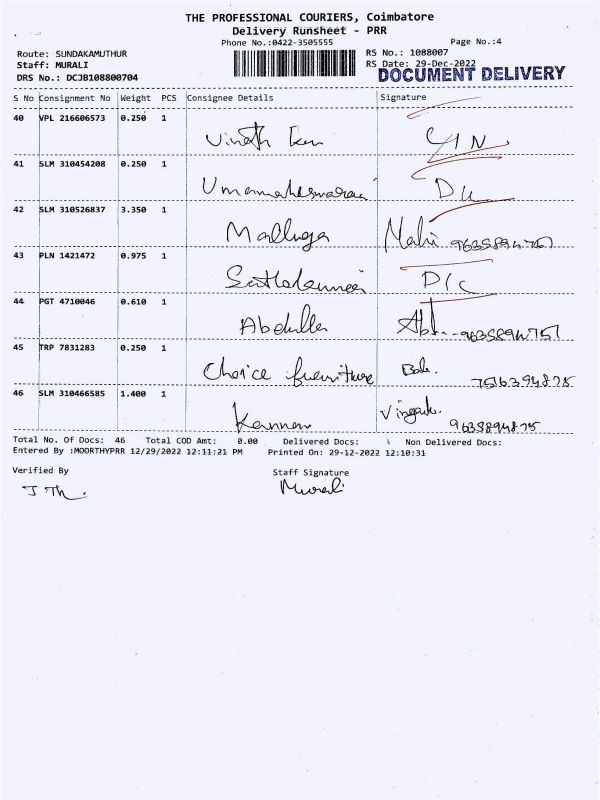 THE PROFESSIONAL COURIERS, Coimbatore
Delivery Runsheet - PRR
Phone No.:0422-3505555 Page No.:4
Route: SUNDAKAMUTHUR RS No.: 1088007
Staff: MURALI RS Date: 29-Dec-2022
DRS No.: DCJB108800704 DOCUMENT DELIVERY
S No Consignment No Weight PCS Consignee Details Signature
40 VPL 216606573 0.250 1
41 SLM 310454208 0.250 1
Umamaheswaran
42 SLM 310526837 3.350 1
Malluga Mahi
43 PLN 1421472 0.975 1
D/c
44 PGT 4710046 0.610 1
Abdulla
45 TRP 7831283 0.250 1
Choice furniture
46 SLM 310466585 1.400 1
Kannan
Total No. Of Docs: 46 Total COD Amt: 0.00 Delivered Docs: Non Delivered Docs:
Entered By :MOORTHYPRR 12/29/2022 12:11:21 PM Printed On: 29-12-2022 12:10:31
Verified By Staff Signature
Murali